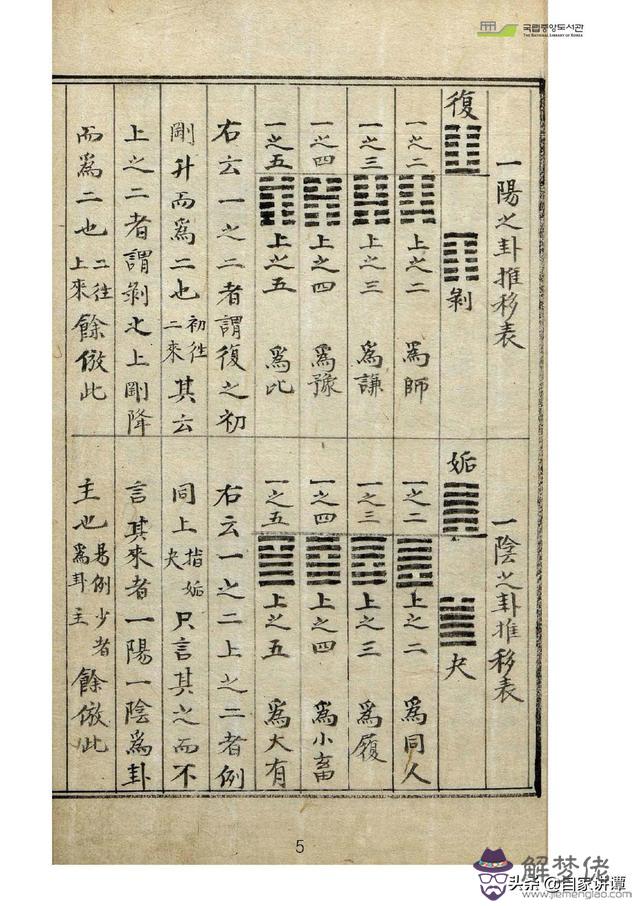 국립중앙도서관
THE NATIONAL LIBRARY OF KOREA
一陽之卦推移表
復
剝
一之二
上之二
爲師
一之三
上之三
爲謙
一之四
上之四
爲豫
一之五
上之五
爲比
右云一之二者謂復之初
剛升而爲二也
初往
二來
其云
上之二者謂剝之上剛降
而爲二也
二往
上來
餘倣此
一陰之卦推移表
姤
夬
一之二
上之二
爲同人
一之三
上之三
爲履
一之四
上之四
爲小畜
一之五
上之五
爲大有
右云一之二上之二者例
同上
指姤
夬
只言其之而不
言其來者一陽一陰爲卦
主也
易例少者
爲卦主
餘倣此
5
解梦佬
www.jiemenglao.com
头条@自家讲谭